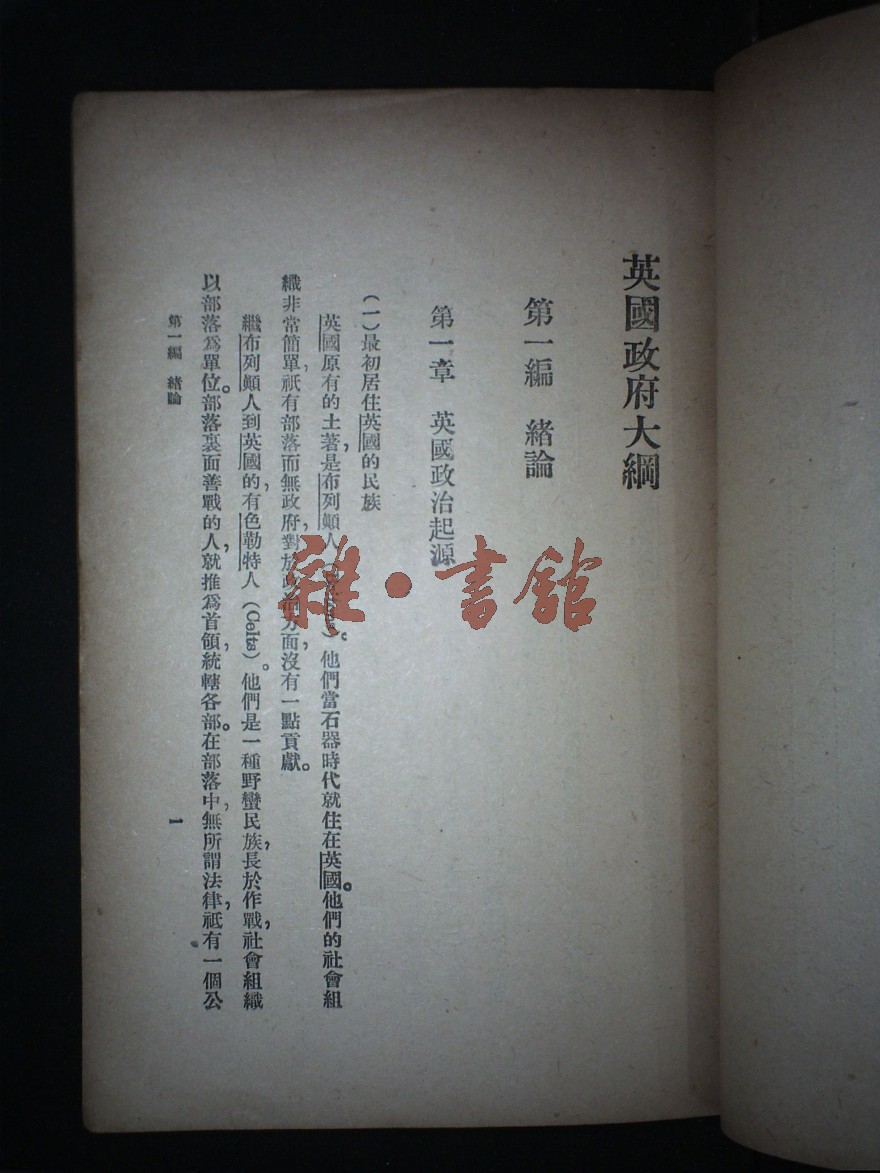 英國政府大綱
第一編　緒論
第一章　英國政治起源
(一)最初居住英國的民族
英國原有的土著,是布列顛人()。他們當石器時代就住在英國。他們的社會組
織非常簡單,祇有部落而無政府,對於政治方面,沒有一點貢獻。
繼布列顛人到英國的,有色勒特人(Celts)。他們是一種野蠻民族,長於作戰,社會組織
以部落爲單位。部落裏面善戰的人,就推爲首領,統轄各部。在部落中,無所謂法律,祇有一個公
第一編　緒論
1
雜·書館